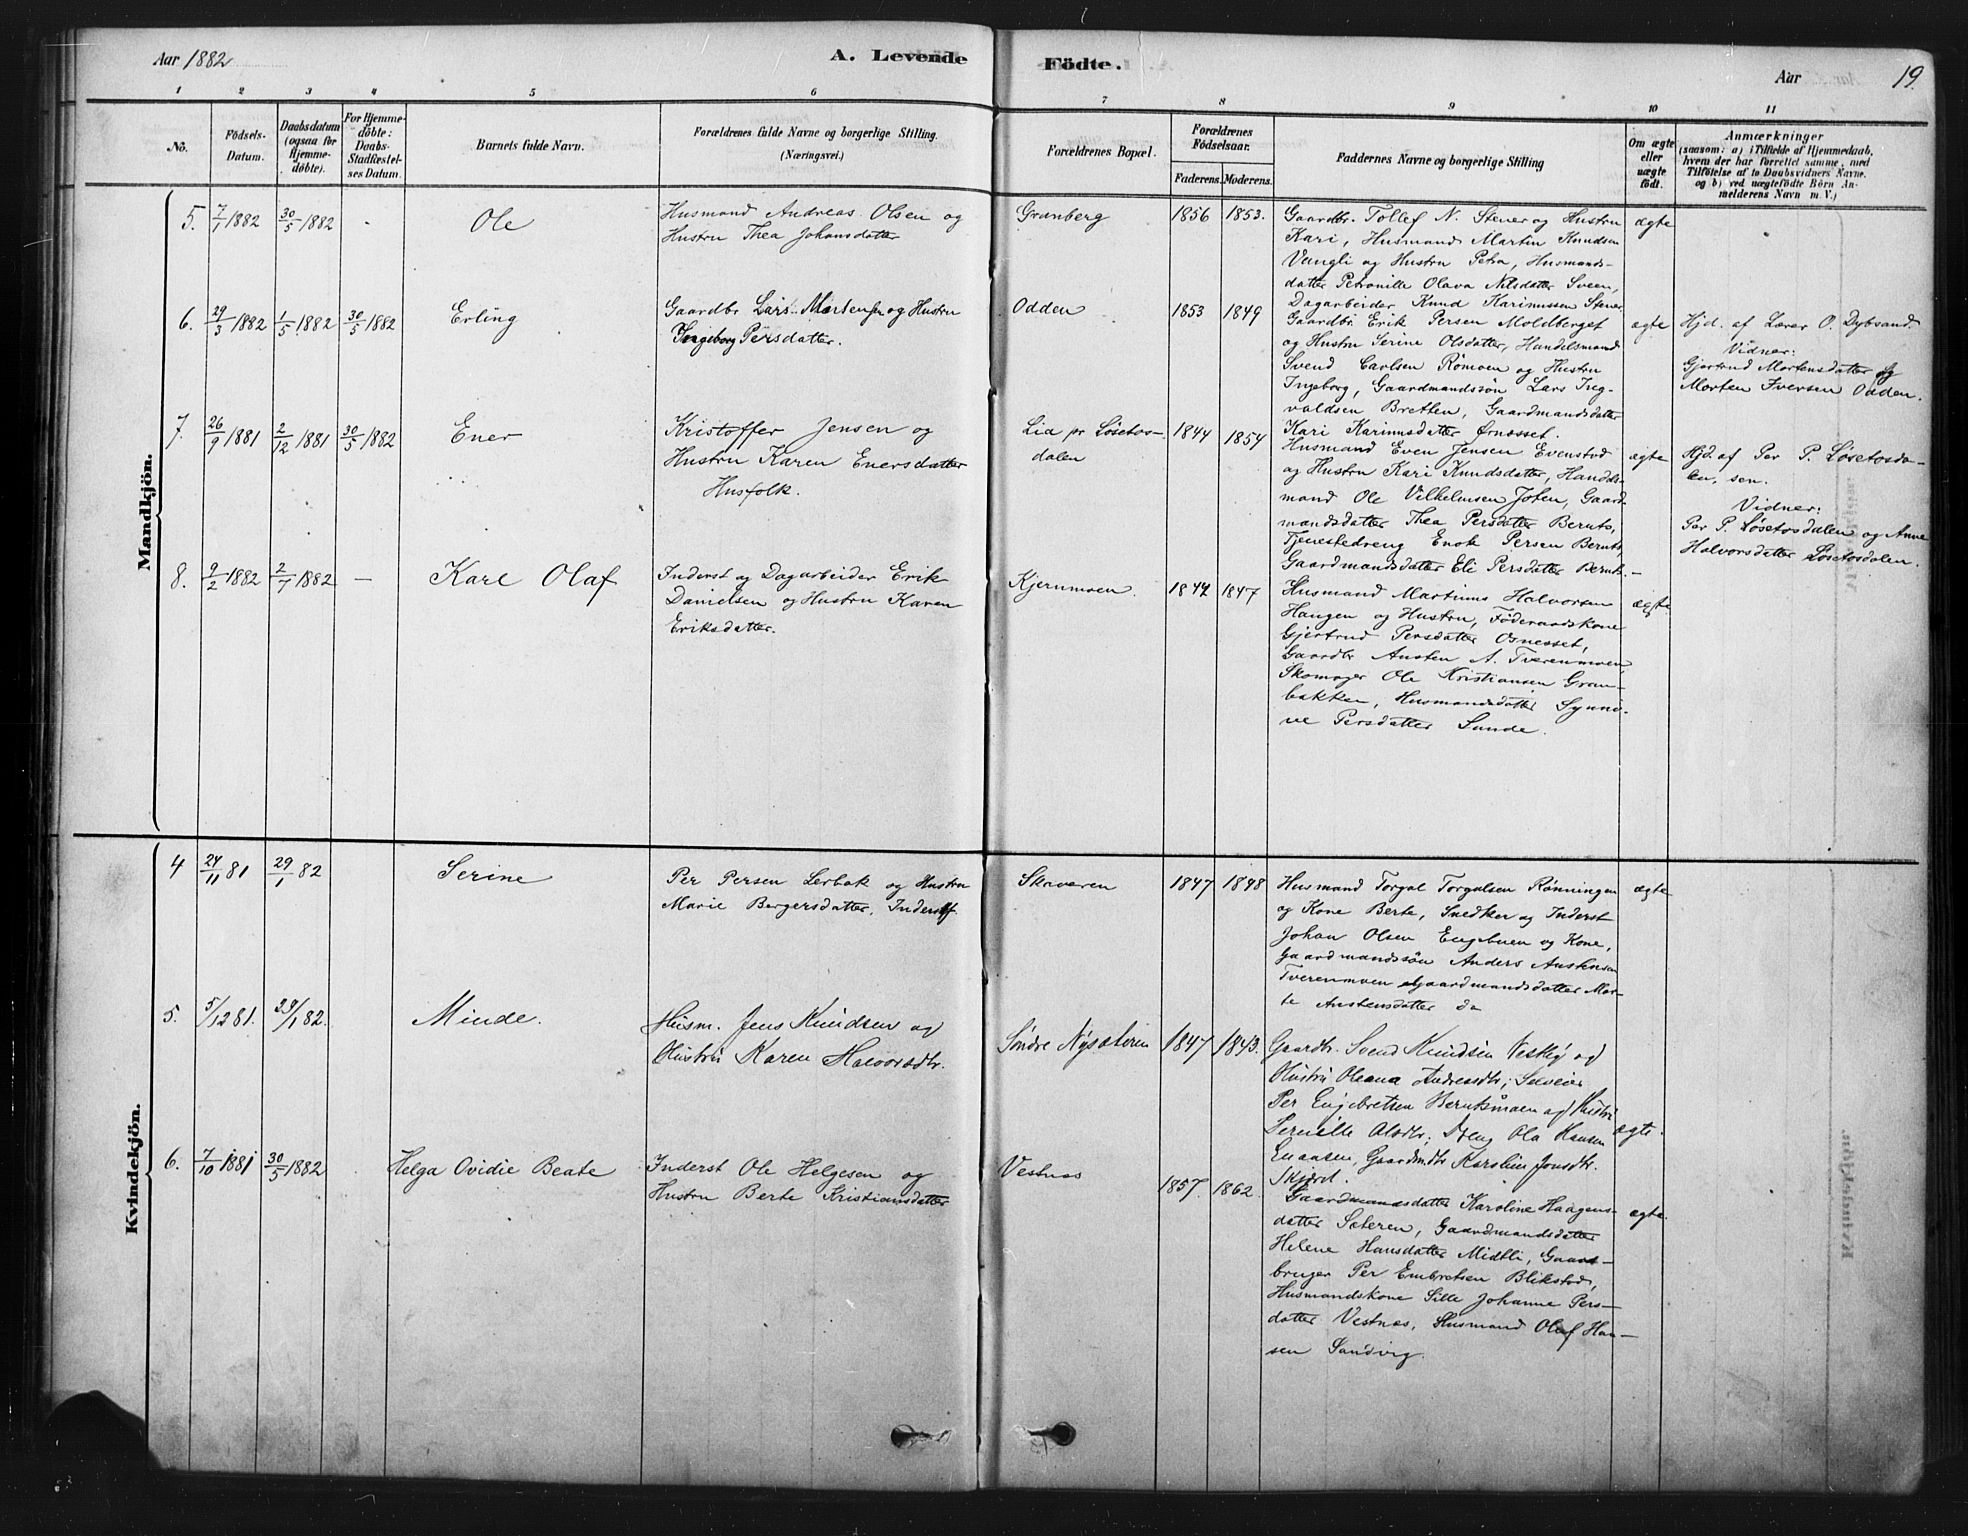 Aar 1882
A. Levende
Födte.
Aar
19.
1 2 3 4 5 6 7 8 9 10 11
No.
Födsels-
Datum.
Daabsdatum
(ogsaa for
Hjemme-
döbte).
For Hjemme-
döbte:
Daabs-
Stadfæstel-
ses Datum.
Barnets fulde Navn.
Forældrenes fulde Navne og borgerlige Stilling.
(Næringsvei.)
Forældrenes Bopæl.
Forældrenes
Födselsaar.
Faderens. Moderens.
Faddernes Navne og borgerlige Stilling
Om ægte
eller
uægte
födt.
Anmærkninger
(saasom: a) i Tilfælde af Hjemmedaab,
hvem der har forrettet samme, med
Tilföielse af to Daabsvidners Navne.
og b) ved uægtefödte Börn An-
melderens Navn m. V.)
Mandkjön.
5. 7/1 1882 30/5 1882 -
Ole
Husmand Andreas Olsen og
Hustru Thea Johansdatter
Granberg
1856 1853.
Gaardbr. Tollef N. Stener og Hustru
Kari, Husmand Martin Knudsen
Vangli og Hustru Petra, Husmands-
datter Petronille Olava Nilsdatter Sveen,
Dagarbeider Knud Karinussen Stener
ægte
6. 29/3 1882 1/5 1882 30/5 1882
Erling
Gaardbr. Lars Mortensen og Hustru
Ingeborg Persdatter.
Odden
1853 1849
Gaardbr. Erik Persen Moldberget
og Hustru Serine Olsdatter, Handelsmand
Svend Carlsen Römoen og Hustru
Ingeborg, Gaardmandssön Lars Ing-
valdsen Bretten, Gaardmandsdatter
Kari Karinusdatter Ørnæsset.
ægte
Hjd. af Lærer O. Dybsand.
Vidner:
Gjertrud Mortensdatter og
Morten Iversen Odden.
7. 26/9 1881 2/12 1881 30/5 1882
Ener
Kristoffer Jensen og
Hustru Karen Enersdatter
Husfolk.
Lia pr Løsetos-
dalen
1844 1854
Husmand Even Jensen Evenstad
og Hustru Kari Knudsdatter, Handels-
mand Ole Vilhelmsen Joten, Gaard-
mandsdatter Thea Persdatter Bernts,
Tjenestedreng Enok Persen Bernts,
Gaardmandsdatter Eli Persdatter Bernts.
ægte
Hjd. af Per P. Løsetosda-
len, sen.
Vidner:
Per P. Løsetosdalen og Anne
Halvorsdatter Løsetosdalen.
8. 9/2 1882 2/7 1882 -
Karl Olaf
Inderst og Dagarbeider Erik
Danielsen og Hustru Karen
Eriksdatter.
Kjernmoen.
1847 1847
Husmand Martinus Halvorsen
Haugen og Hustru, Föderaadskone
Gjertrud Persdatter Osnesset,
Gaardbr Austen A. Tverenmoen,
Skomager Ole Kristiansen Gran-
bakken, Husmandsdatter Synnö-
ve Persdatter Sunde.
ægte
Kvindekjön.
4 24/11 81 29/1 82
Serine
Per Persen Lerbak og Hustru
Marie Bergersdatter, Inderstf.
Skaveren
1847 1848
Husmand Torgal Torgalsen Rønningen
og Kone Berte, Snedker og Inderst
Johan Olsen Engebuen og Kone,
Gaardmandssön Anders Austensen
Tverenmoen Gaardmandsdatter Mar-
te Austensdatter do
ægte
5. 5/12 81. 29/1 82.
Minde.
Husm. Jens Knudsen og
Hustru Karen Halvorsdtr.
Søndre Nysæteren
1847 1843.
Gaardbr. Svend Knudsen Vestby og
Hustru Oleana Andreasdtr;
Per Engebretsen Berntsmoen og Hustru
Pernille Olsdtr; Ola Hansen
Enaasen, Gaardmdtr Karoline Jonsdtr.
Skjærd.
ægte.
6. 7/10 1881 30/5 1882
Helga Ovidie Beate
Inderst Ole Helgesen og
Hustru Berte Kristiansdatter
Vestnas
1857. 1862.
Gaardmandsdatter Karoline Haagens-
datter Sæteren, Gaardmandsdatter
Helene Hansdatter Midtli, Gaard-
bruger Per Embretsen Blikstad,
Husmandskone Sille Johanne Pers-
datter Vestnas, Husmand Olaf Han-
sen Sandvig.
ægte.